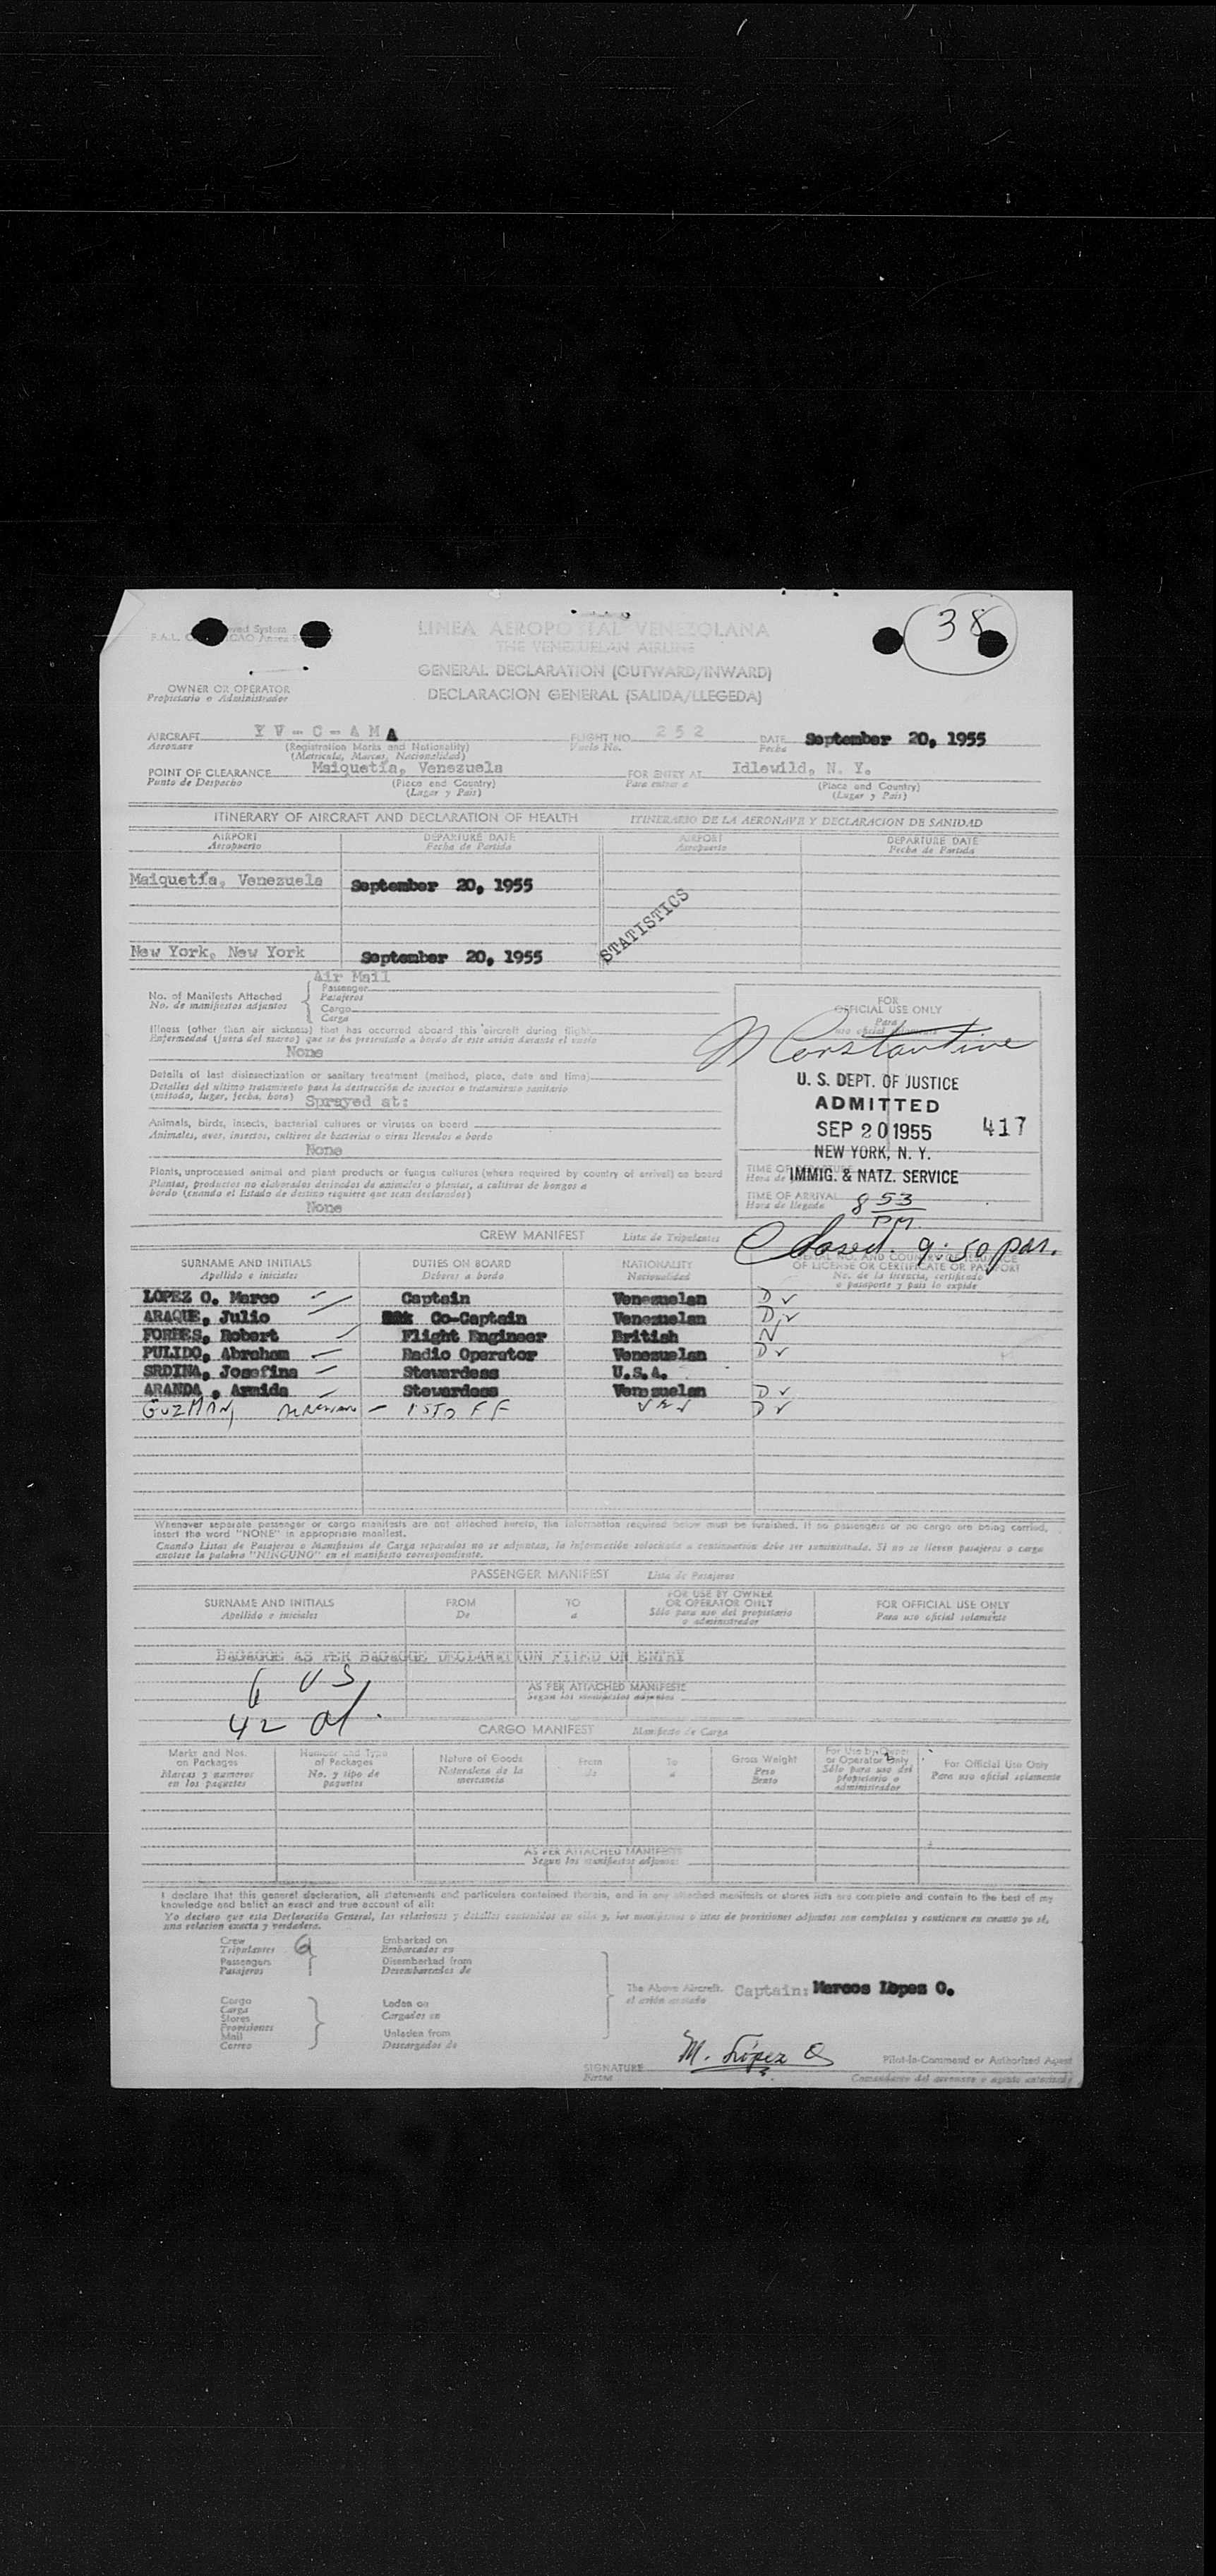 38
LINEA AEROPOSTAL VENEZOLANA
THE VENEZUELAN AIRLINE
GENERAL DECLARATION (OUTWARD/INWARD)
DECLARACION GENERAL (SALIDA/LLEGEDA)
OWNER OR OPERATOR
Propietario o Administrador
AIRCRAFT YV-C-AMA FLIGHT NO. 252 DATE September 20, 1955
Aeronave (Registration Marks and Nationality) Vuelo No. Fecha
(Matrícula, Marcas, Nacionalidad)
POINT OF CLEARANCE Maiquetía, Venezuela FOR ENTRY AT Idlewild, N. Y.
Punto de Despacho (Place and Country) Para entrar a (Place and Country)
(Lugar y País) (Lugar y País)
ITINERARY OF AIRCRAFT AND DECLARATION OF HEALTH ITINERARIO DE LA AERONAVE Y DECLARACION DE SANIDAD
AIRPORT DEPARTURE DATE AIRPORT DEPARTURE DATE
Aeropuerto Fecha de Partida Aeropuerto Fecha de Partida
Maiquetía, Venezuela September 20, 1955
STATISTICS
New York, New York September 20, 1955
Air Mail
No. of Manifests Attached Passenger
No. de manifiestos adjuntos Pasajeros
Cargo
Carga
Illness (other than air sickness) that has occurred aboard this aircraft during flight
Enfermedad (fuera del mareo) que se ha presentado a bordo de este avión durante el vuelo
None
Details of last disinsectization or sanitary treatment (method, place, date and time)
Detalles del ultimo tratamiento para la destrucción de insectos o tratamiento sanitario
(método, lugar, fecha, hora) Sprayed at:
Animals, birds, insects, bacterial cultures or viruses on board
Animales, aves, insectos, cultivos de bacterias o virus llevados a bordo
None
Plants, unprocessed animal and plant products or fungus cultures (where required by country of arrival) on board
Plantas, productos no elaborados derivados de animales o plantas, a cultivos de hongos a
bordo (cuando el Estado de destino requiere que sean declarados)
None
FOR
OFFICIAL USE ONLY
Para
uso oficial solamente
Constantine
U. S. DEPT. OF JUSTICE
ADMITTED
SEP 20 1955 417
NEW YORK, N. Y.
IMMIG. & NATZ. SERVICE
TIME OF ARRIVAL 8 53
Hora de llegada PM
Closed. 9:50 pm.
CREW MANIFEST Lista de Tripulantes
SURNAME AND INITIALS DUTIES ON BOARD NATIONALITY OF LICENSE OR CERTIFICATE OR PASSPORT
Apellido e iniciales Deberes a bordo Nacionalidad No. de la licencia, certificado
o pasaporte y país lo expide
LOPEZ O. Marco Captain Venezuelan D ✓
ARAQUE, Julio Co-Captain Venezuelan D ✓
FORBES, Robert Flight Engineer British N
PULIDO, Abraham Radio Operator Venezuelan D ✓
SRDINA, Josefina Stewardess U.S.A.
ARANDA , Armida Stewardess Venezuelan D ✓
GUZMAN, 1ST OFF D ✓
Whenever separate passenger or cargo manifests are not attached hereto, the information required below must be furnished. If no passengers or no cargo are being carried,
insert the word "NONE" in appropriate manifest.
Cuando Listas de Pasajeros o Manifiestos de Carga separados no se adjuntan, la información solicitada a continuación debe ser suministrada. Si no se lleven pasajeros o carga
anotese la palabra "NINGUNO" en el manifiesto correspondiente.
PASSENGER MANIFEST Lista de Pasajeros
SURNAME AND INITIALS FROM TO FOR USE BY OWNER OR OPERATOR ONLY FOR OFFICIAL USE ONLY
Apellido e iniciales De a Sólo para uso del propietario o administrador Para uso oficial solamente
BAGAGGE AS PER BAGAGGE DECLARATION FILED ON ENTRY
6 US
AS PER ATTACHED MANIFESTS
Segun los manifiestos adjuntos
42 al.
CARGO MANIFEST Manifiesto de Carga
Marks and Nos. on Packages Number and Type of Packages Nature of Goods From To Gross Weight For Use by Owner or Operator Only For Official Use Only
Marcas y numeros en los paquetes No. y tipo de paquetes Naturaleza de la mercancía de a Peso Bruto Sólo para uso del propietario o administrador Para uso oficial solamente
AS PER ATTACHED MANIFESTS
Segun los manifiestos adjuntos
I declare that this general declaration, all statements and particulars contained therein, and in any attached manifests or stores lists are complete and contain to the best of my
knowledge and belief an exact and true account of all:
Yo declaro que esta Declaración General, las relaciones y detalles contenidos en ella y, los manifiestos o listas de provisiones adjuntos son completos y contienen en cuanto yo sé,
una relación exacta y verdadera.
Crew 6 Embarked on
Tripulantes Embarcados en
Passengers Disembarked from
Pasajeros Desembarcados de
The Above Aircraft. Captain: Marcos Lopez O.
el avión anotado
Cargo Laden on
Carga Cargados en
Stores
Provisiones
Mail Unladen from
Correo Descargados de
M. López O
SIGNATURE Pilot-in-Command or Authorized Agent
Firma Comandante del aeronave o agente autorizado